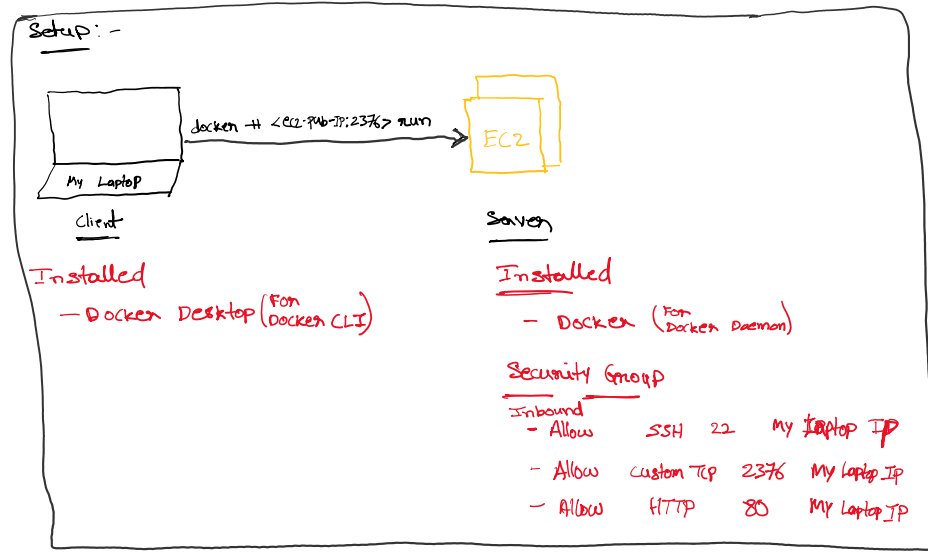 Setup:-
docker -H <ec2-pub-IP:2376> run
EC2
My Laptop
Client
Server
Installed
- Docker Desktop (For Docker CLI)
Installed
- Docker (For Docker Daemon)
Security Group
Inbound
- Allow SSH 22 My Laptop IP
- Allow Custom TCP 2376 My Laptop IP
- Allow HTTP 80 My Laptop IP